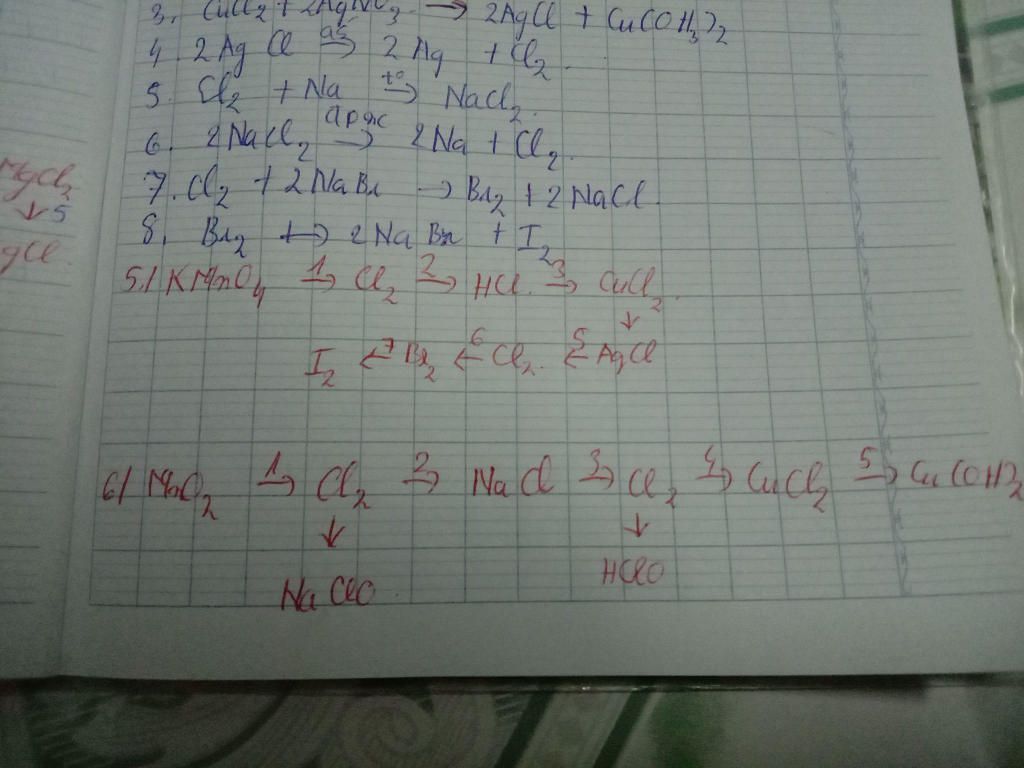 3. CuCl2 + 2AgNO3 → 2AgCl + Cu(OH3)2
4 2AgCl as→ 2Ag + Cl2.
5. Cl2 + Na t°→ NaCl2.
6. 2NaCl2 → 2Na + Cl2.
7. Cl2 + 2NaBr → Br2 + 2NaCl
8. Br2 → 2NaBr + I2
MgCl2
↓ 5
gCl.
5./ KMnO4 1→ Cl2 2→ HCl 3→ CuCl2.
↓
I2 ←7 Br2 ←6 Cl2. ←5 AgCl
6/ MnO2 1→ Cl2 2→ NaCl 3→ Cl2 4→ CuCl2 5→ Cu(OH)2
↓ ↓
NaClO HClO